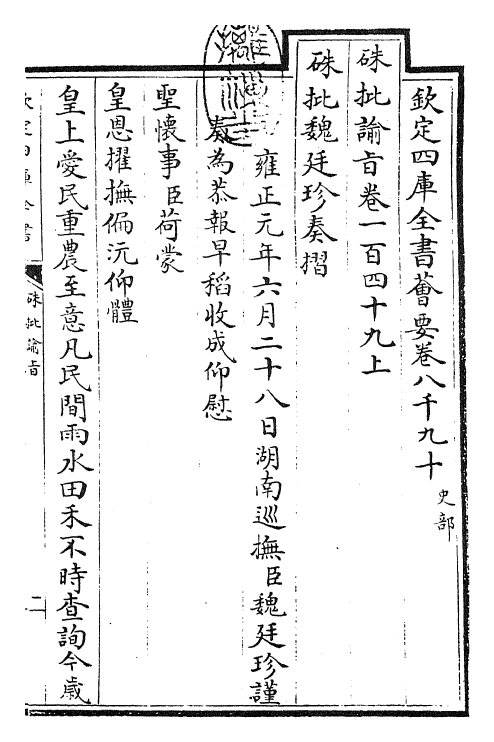 欽定四庫全書薈要卷八千九十
史部
硃批諭旨卷一百四十九上
硃批魏廷珍奏摺
雍正元年六月二十八日湖南巡撫臣魏廷珍謹
奏為恭報早稻收成仰慰
聖懷事臣荷蒙
皇恩擢撫偏沅仰體
皇上愛民重農至意凡民間雨水田禾不時查詢今歲
欽定四庫全書
硃批諭旨